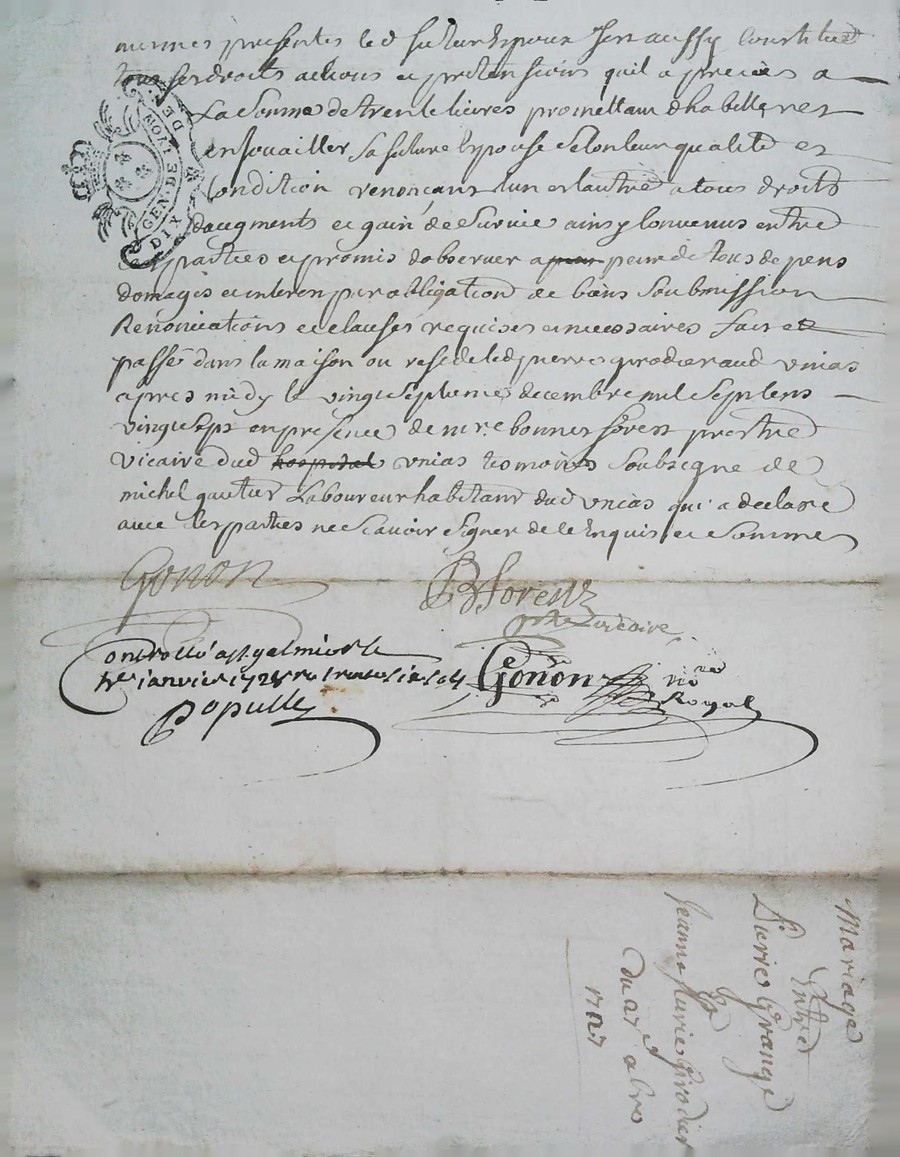 mesmes presentes led futur Epoux sest aussy Constitué
tous ses droits actions et pretensions quil a precies a
La Somme de trente livres promettant dhabille, et
ensouailler Sa future Epouse Selon leur qualité et
Condition renoncant lun et lautre a tous droits
daugments et gain de Survie ainsy Convenus entre
parties et promis dobserver a peine de tous depens
domages et interest par obligation de biens Soubmission
Renonciations et clauses requises et necessaires fait et
passé dans la maison ou reside led pierre girodier aud unias
apres midy le vingt Septieme decembre mil Sept Cens
vingt Sept en presence de mre bonnet forest prestre
Vicaire dud unias temoins Soubsigne de
michel gautier Laboureur habitant dud unias qui a declaré
avec les parties ne Scavoir Signer de ce Enquis et Sommes
Gonon
B forest
ptre Vicaire
Controllé a st galmier le
janvier 1728
Populle
Gonon nore
Royal
GEN. DE LYON
DIX DE
Mariage
Entre
Grange
Et
Jeanne flurie Girodier
du 27e xbre
1727